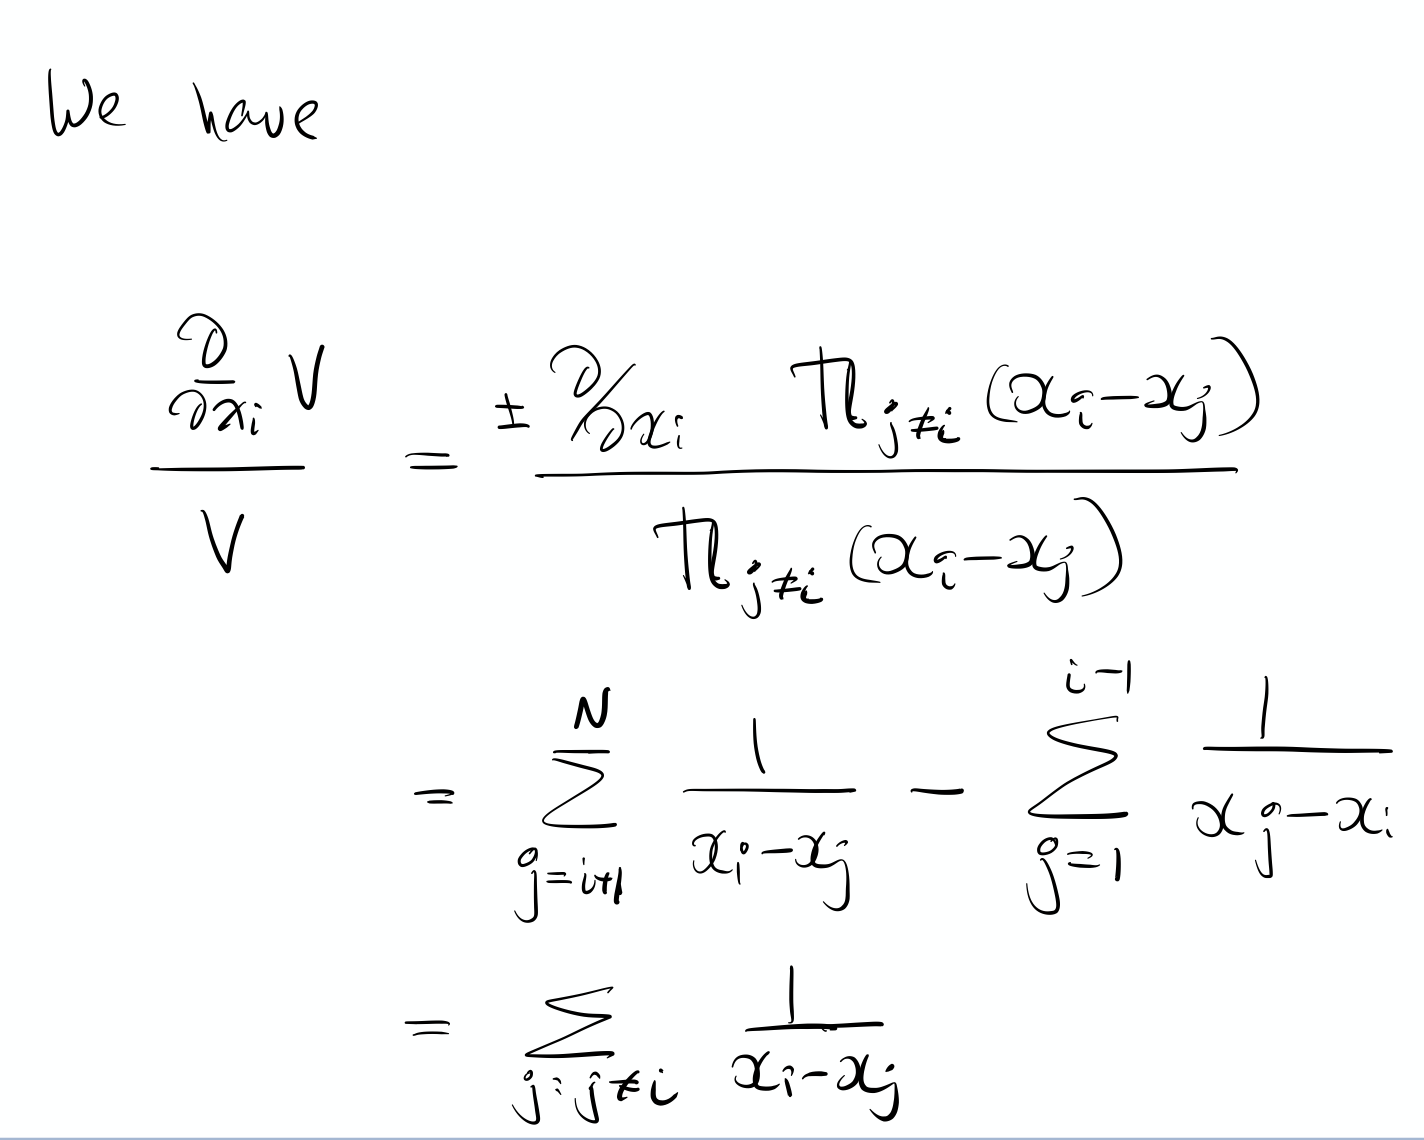 We have
$\frac{\frac{\partial}{\partial x_i} V}{V} = \frac{\pm \partial / \partial x_i \ \prod_{j \neq i} (x_i - x_j)}{\prod_{j \neq i} (x_i - x_j)}$
$= \sum_{j=i+1}^{N} \frac{1}{x_i - x_j} - \sum_{j=1}^{i-1} \frac{1}{x_j - x_i}$
$= \sum_{j : j \neq i} \frac{1}{x_i - x_j}$